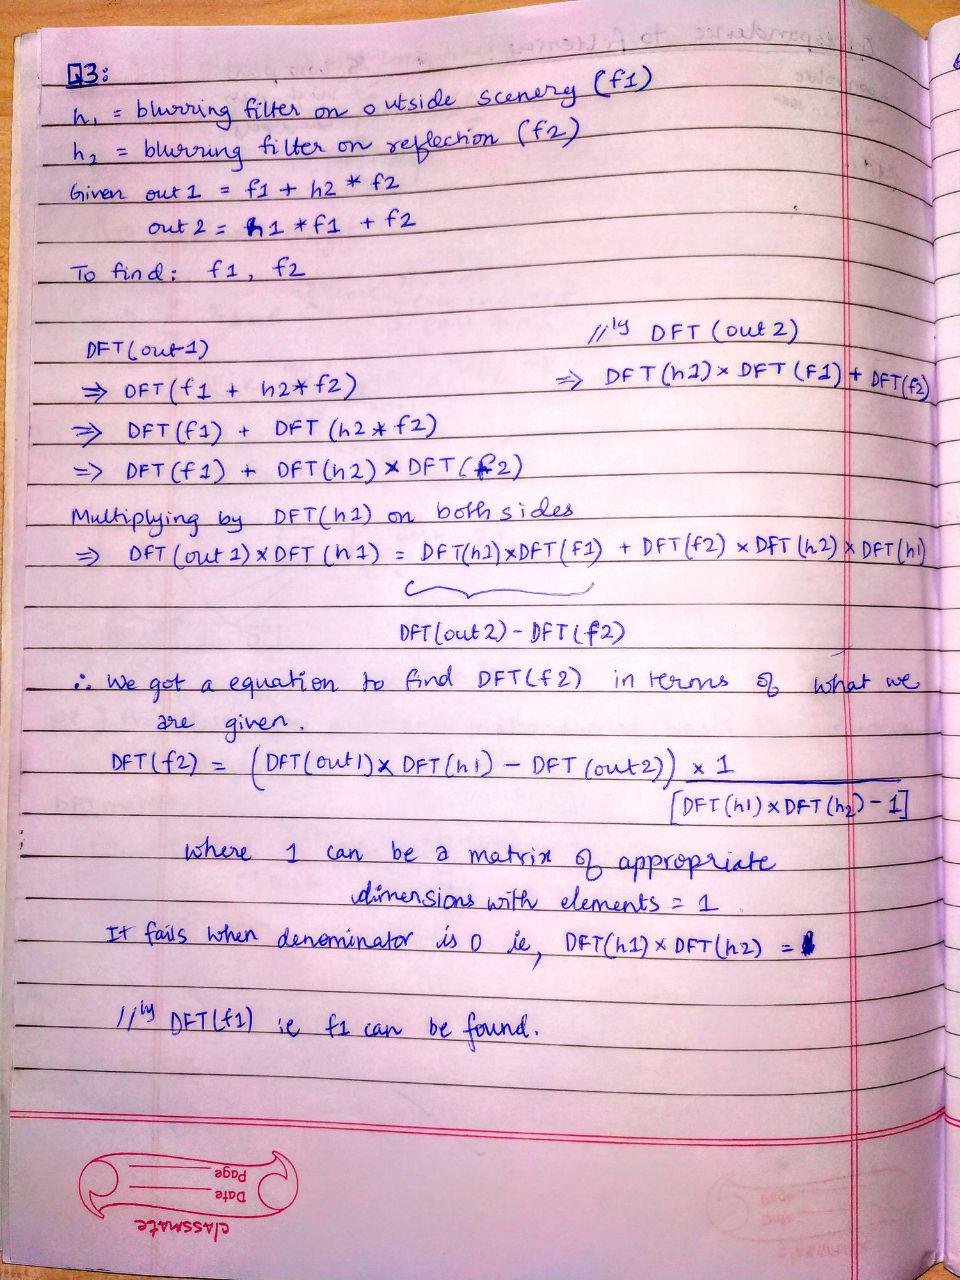 Q3:
h1 = blurring filter on outside scenery (f1)
h2 = blurring filter on reflection (f2)
Given out 1 = f1 + h2 * f2
out 2 = h1 * f1 + f2
To find: f1, f2
DFT(out1)
⇒ DFT(f1 + h2*f2)
⇒ DFT(f1) + DFT (h2 * f2)
=> DFT(f1) + DFT(h2) × DFT(f2)
//ly DFT (out 2)
=> DFT(h1) × DFT (f1) + DFT(f2)
Multiplying by DFT(h1) on both sides
⇒ DFT (out 1) × DFT (h1) = DFT(h1)×DFT(f1) + DFT(f2) × DFT (h2) × DFT(h1)
DFT(out 2) - DFT(f2)
∴ We got a equation to find DFT(f2) in terms of what we
are given.
DFT(f2) = (DFT(out1)× DFT(h1) - DFT(out2)) × 1
[DFT(h1) × DFT(h2) - 1]
where 1 can be a matrix of appropriate
dimensions with elements = 1
It fails when denominator is 0 ie, DFT(h1) × DFT(h2) = 1
//ly DFT(f1) ie f1 can be found.
classmate
Date
Page